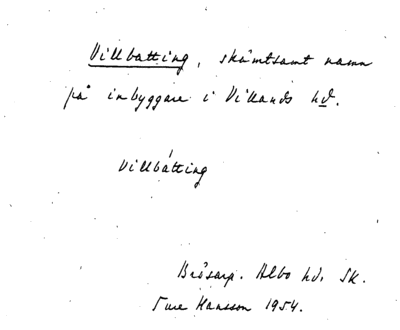 Villbatting, skämtsamt namn
på inbyggare i Villands hd.
Villbátting
Brösarp. Albo hd. Sk.
Ture Hansson 1954.